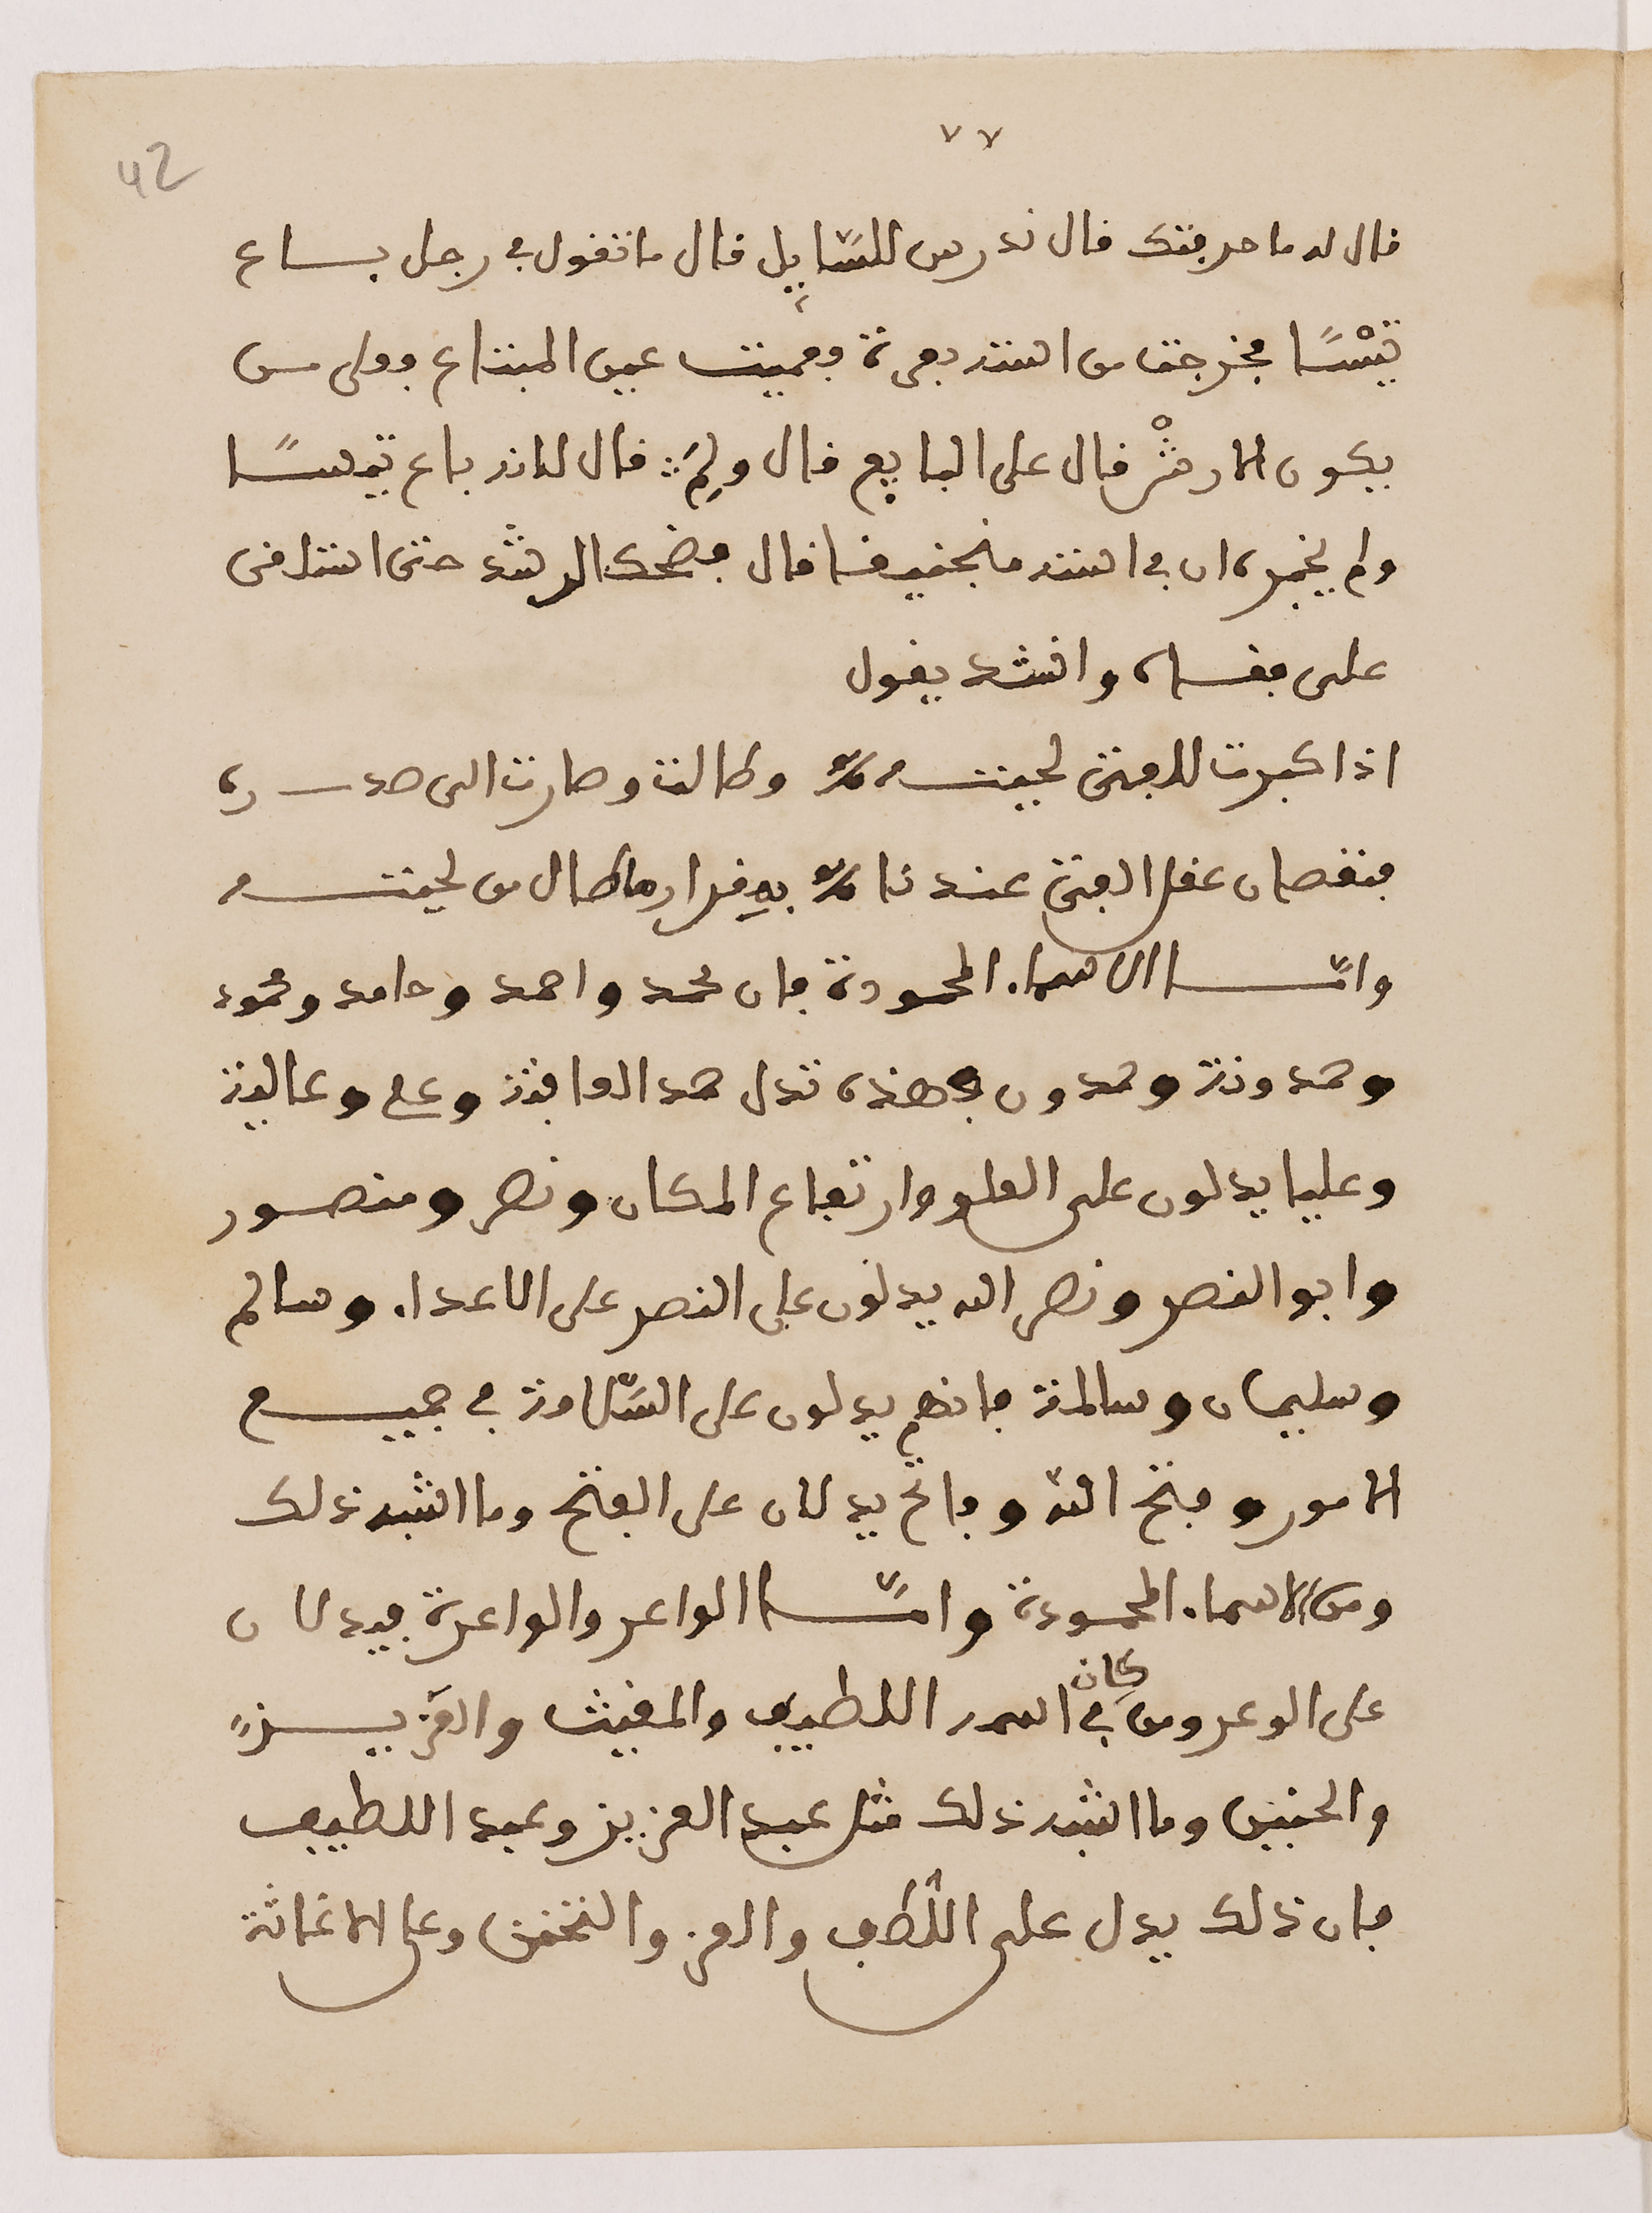 ٧٧
42
قال له ما حرفتك قال ندرس للسَّايل قال ما تقول في رجل بـاع
تيْسًا فخرجت من استه بعرة ففميت عين المبتاع فعلى مـن
يكون الارشْ قال على البايع قال ولِمَ قال لانه باع تيسـًا
ولم يخبره ان في استه منجنيقا قال فضحك الرشد حتى استلقى
على قفـاه وانشد يقول
اذا كبرت للفتى لحيتـه وطالت وصارت الى صدره
فنقصان عقل الفتى عندنا بمقدار ما طال من لحيتـه
وامّـا الاسما، المحمودة فان محمد واحمد وحامد ومحمود
وحمدونة وحمدون فهذه تدل حمد العافبة وعلى وعالية
وعليا يدلون على العلو وارتفاع المكان ونصر ومنصـور
وابو النصر ونصر الله يدلون على النصر على الاعدا، وسالم
وسليمان وسالمة فانهم يدلون على السَّلامة في جميـع
الامور وفتح الله وفاتح يدلان على الفتح وما اشبه ذلك
ومن الاسما، المحمودة وامّـا الواعر والواعرة فيدلا ن
على الوعر ومن كان في اسمه اللطيف والمغيث والعَزيـز
والحنين وما اشبه ذلك مثل عبد العزيز وعبد اللطيف
فان ذلك يدل على اللّطف والعز والتحنن وعلى الاغاثة